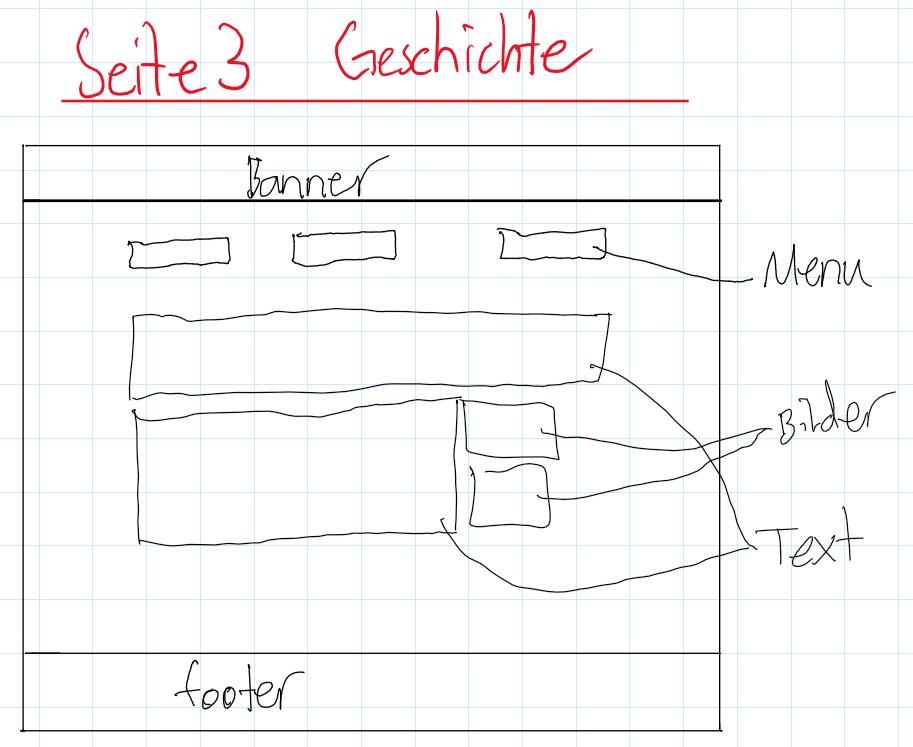 Seite 3 Geschichte
Banner
Menu
Bilder
Text
footer